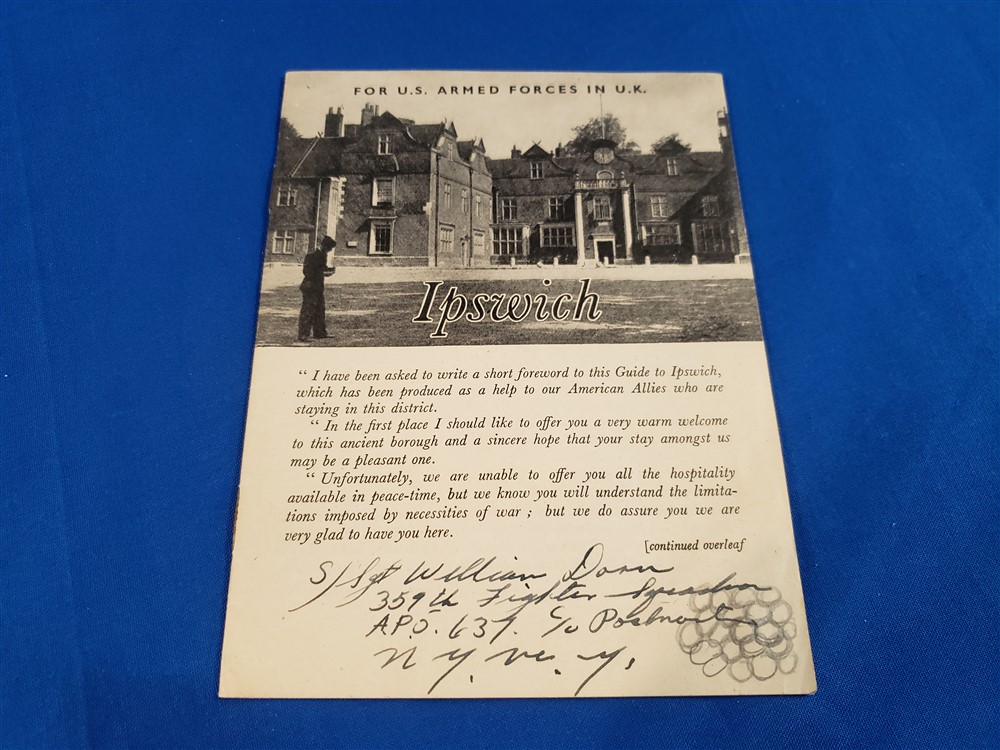 FOR U.S. ARMED FORCES IN U.K.
Ipswich
“ I have been asked to write a short foreword to this Guide to Ipswich,
which has been produced as a help to our American Allies who are
staying in this district.
“ In the first place I should like to offer you a very warm welcome
to this ancient borough and a sincere hope that your stay amongst us
may be a pleasant one.
“ Unfortunately, we are unable to offer you all the hospitality
available in peace-time, but we know you will understand the limita-
tions imposed by necessities of war ; but we do assure you we are
very glad to have you here.
[continued overleaf
S/Sgt William Dorn
359th Fighter Squadron
A.P.O. 637. c/o
N.Y.